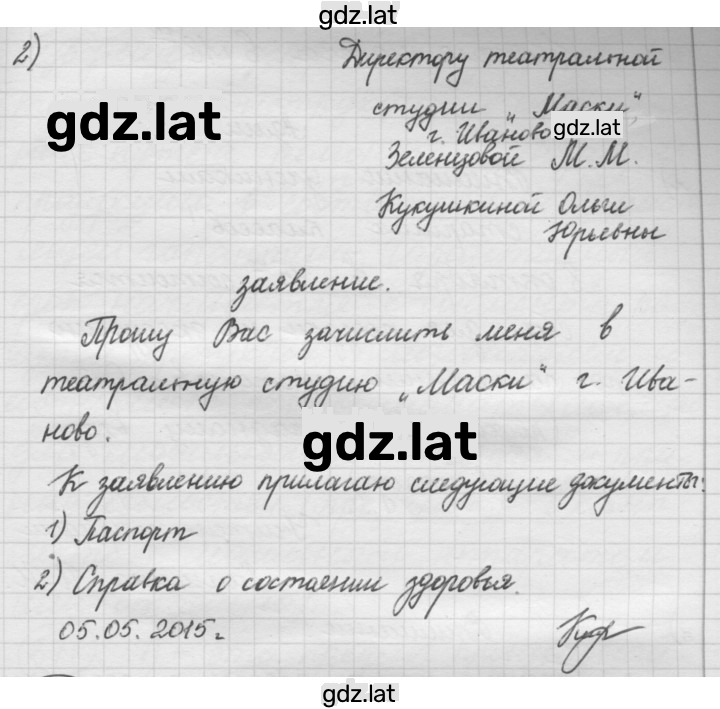 gdz.lat
2)
Директору театральной
gdz.lat
студии „Маски",
г. Иваново
gdz.lat
Зеленцовой М.М.
Кукушкиной Ольги
Юрьевны
заявление.
Прошу Вас зачислить меня в
театральную студию „Маски" г. Ива-
ново.
gdz.lat
К заявлению прилагаю следующие документы:
1) Паспорт
2) Справка о состоянии здоровья.
05.05.2015г.
gdz.lat